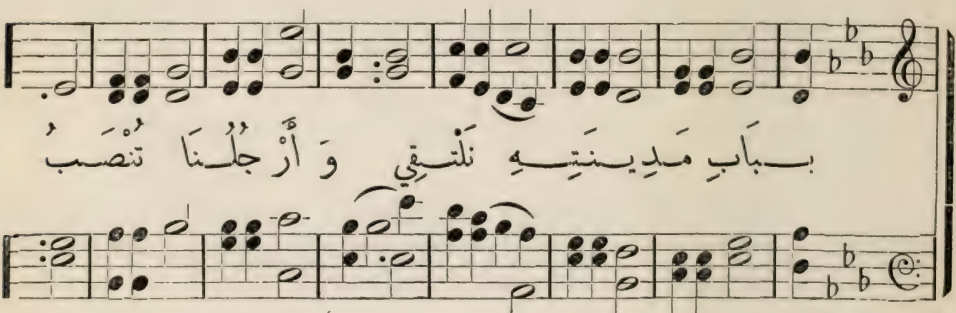 بِـبَابِ مَدِيـنَتِـهِ نَلْتَـقِي وَ أَرْجُلُـنَا تُنْصَـبُ